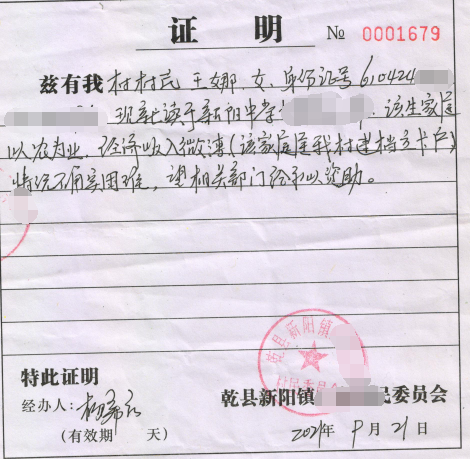 证 明 № 0001679
兹有我 村村民 王娜，女，身份证号 610424
现就读于新阳中学 ，该生家庭
以农为业，经济收入微薄（该家庭是我村建档立卡户）
情况 困难，望相关部门给予以资助。
乾县新阳镇
村民委员会
特此证明
经办人：
乾县新阳镇 民委员会
（有效期 天）
2021年 9月 21日